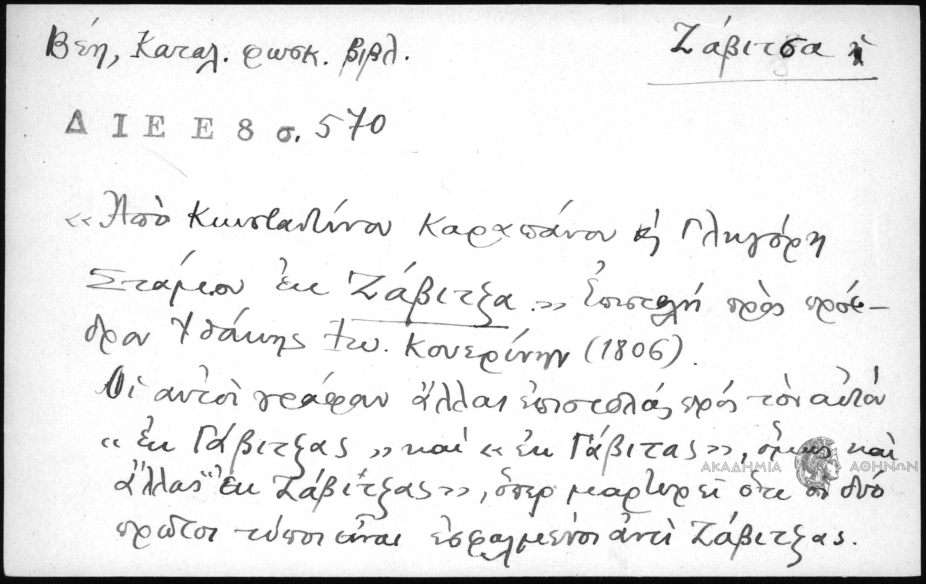 Βέη, Καταλ. ρωσκ. βιβλ.
Ζάβιτσα ἡ
ΔΙΕΕ 8 σ. 570
«Ἀπὸ Κωνσταντίνου Καραπάνου ἢ Γληγόρη
Στάμου ἐκ Ζάβιτζα.» Ἐπιστολή πρὸς πρόε-
δρον Ἰθάκης Ἰω. Κονερίνην (1806).
Οἱ αὐτοὶ γράφουν ἄλλας ἐπιστολάς πρός τὸν αὐτόν
«ἐκ Γάβιτζας» καὶ «ἐκ Γάβιτας», ὅμως καὶ
ἄλλας "ἐκ Ζάβιτζας», ὅπερ μαρτυρεῖ ὅτι οἱ δύο
πρῶτοι τύποι εἶναι ἐσφαλμένοι ἀντὶ Ζάβιτζας.
ΑΚΑΔΗΜΙΑ ΑΘΗΝΩΝ